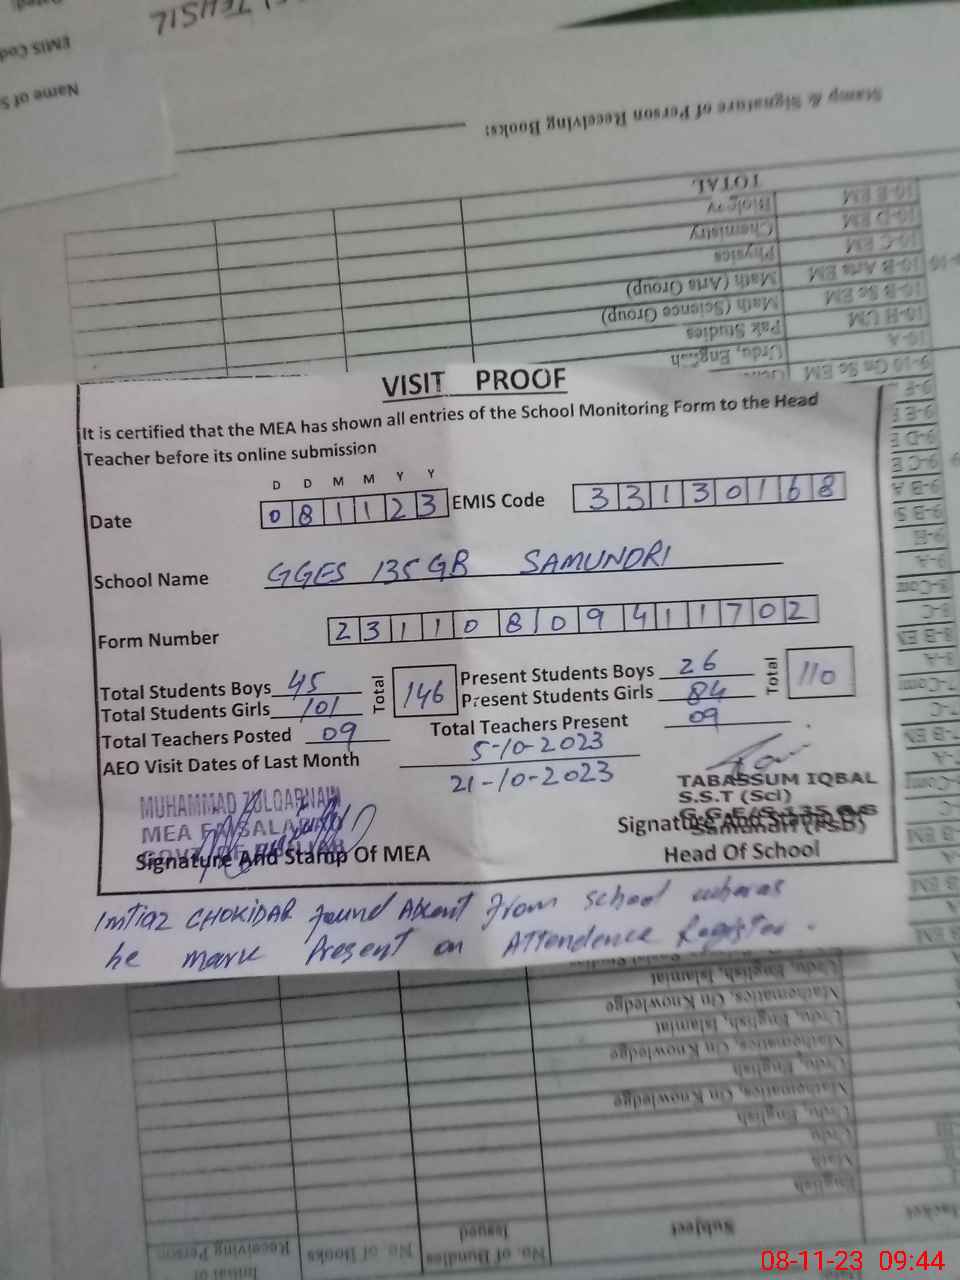 VISIT PROOF
It is certified that the MEA has shown all entries of the School Monitoring Form to the Head
Teacher before its online submission
D D M M Y Y
Date 081123 EMIS Code 33130168
School Name GGES 135 GB SAMUNDRI
Form Number 23110809411702
Total Students Boys 45 Total 146 Present Students Boys 26 Total 110
Total Students Girls 101 Present Students Girls 84
Total Teachers Posted 09 Total Teachers Present 09
AEO Visit Dates of Last Month 5-10-2023
21-10-2023
MUHAMMAD ZULQARNAIN
MEA FAISALABAD
TABASSUM IQBAL
S.S.T (Sci)
Signature And Stamp Of MEA
Signature And Stamp Of
Head Of School
Imtiaz CHOKIDAR found Absent from school wheras
he mark Present on Attendence Register.
Stamp & Signature of Person Receiving Books:
TOTAL
10-E EM Biology
10-D EM Chemistry
10-C EM Physics
10-B Arts EM Math (Arts Group)
10-B Sc EM Math (Science Group)
10-H UM Pak Studies
10-A Urdu, English
9-10 Gn Sc EM
Urdu, English, Islamiat
Mathematics, Gn Knowledge
Urdu, English, Islamiat
Mathematics, Gn Knowledge
Urdu, English
Mathematics, Gn Knowledge
Urdu, English
Urdu
Math
English
Subject No. of Bundles Issued No. of Books Receiving Person
EMIS Cod
Name of S
TEHSIL
08-11-23 09:44